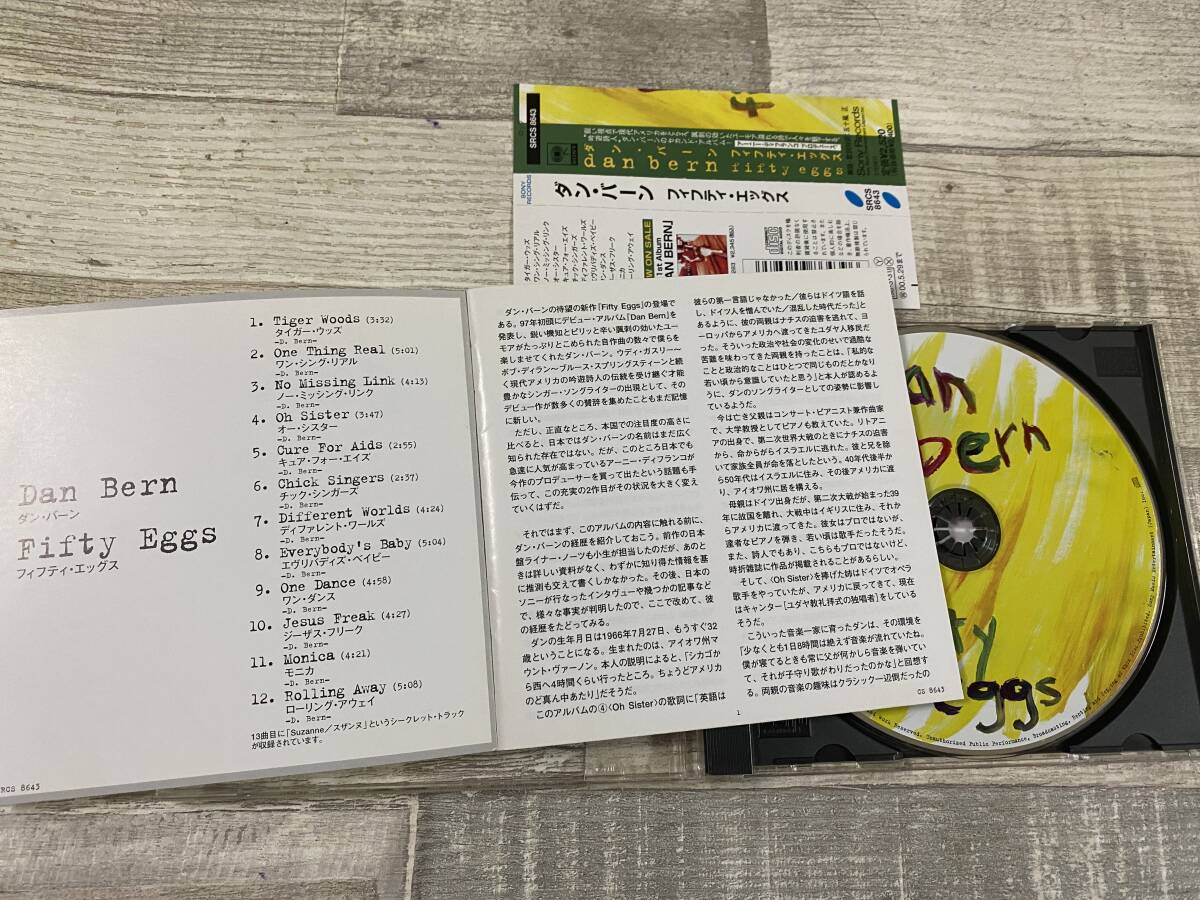 Dan Bern
ダン・バーン
Fifty Eggs
フィフティ・エッグス
1. Tiger Woods (3:32)
タイガー・ウッズ
—D. Bern—
2. One Thing Real (5:01)
ワン・シング・リアル
—D. Bern—
3. No Missing Link (4:13)
ノー・ミッシング・リンク
—D. Bern—
4. Oh Sister (3:47)
オー・シスター
—D. Bern—
5. Cure For Aids (2:55)
キュア・フォー・エイズ
—D. Bern—
6. Chick Singers (2:37)
チック・シンガーズ
—D. Bern—
7. Different Worlds (4:24)
ディファレント・ワールズ
—D. Bern—
8. Everybody's Baby (5:04)
エヴリバディズ・ベイビー
—D. Bern—
9. One Dance (4:58)
ワン・ダンス
—D. Bern—
10. Jesus Freak (4:27)
ジーザス・フリーク
—D. Bern—
11. Monica (4:21)
モニカ
—D. Bern—
12. Rolling Away (5:08)
ローリング・アウェイ
—D. Bern—
13曲目に「Suzanne/スザンヌ」というシークレット・トラック
が収録されています。
RCS 8643
ダン・バーンの待望の新作『Fifty Eggs』の登場で
ある。97年初頭にデビュー・アルバム『Dan Bern』を
発表し、鋭い機知とピリッと辛い諷刺の効いたユー
モアがたっぷりとこめられた自作曲の数々で僕らを
楽しませてくれたダン・バーン。ウディ・ガスリー〜
ボブ・ディラン〜ブルース・スプリングスティーンと続
く現代アメリカの吟遊詩人の伝統を受け継ぐ才能
豊かなシンガー・ソングライターの出現として、その
デビュー作が数多くの賛辞を集めたこともまだ記憶
に新しい。
ただし、正直なところ、本国での注目度の高さに
比べると、日本ではダン・バーンの名前はまだ広く
知られた存在ではない。だが、このところ日本でも
急速に人気が高まっているアーニー・ディフランコが
今作のプロデューサーを買って出たという話題も手
伝って、この充実の2作目がその状況を大きく変え
ていくはずだ。
それではまず、このアルバムの内容に触れる前に、
ダン・バーンの経歴を紹介しておこう。前作の日本
盤ライナー・ノーツも小生が担当したのだが、あのと
きは詳しい資料がなく、わずかに知り得た情報を基
に推測も交えて書くしかなかった。その後、日本の
ソニーが行なったインタヴューや幾つかの記事など
で、様々な事実が判明したので、ここで改めて、彼
の経歴をたどってみる。
ダンの生年月日は1966年7月27日、もうすぐ32
歳ということになる。生まれたのは、アイオワ州マ
ウント・ヴァーノン。本人の説明によると、「シカゴか
ら西へ4時間くらい行ったところ。ちょうどアメリカ
のど真ん中あたり」だそうだ。
このアルバムの④〈Oh Sister〉の歌詞に「英語は
彼らの第一言語じゃなかった/彼らはドイツ語を話
し、ドイツ人を憎んでいた/混乱した時代だった」と
あるように、彼の両親はナチスの迫害を逃れて、ヨ
ーロッパからアメリカへ渡ってきたユダヤ人移民だ
った。そういった政治や社会の変化のせいで過酷な
苦難を味わってきた両親を持ったことは、「私的な
ことと政治的なことはひとつで同じものだとかなり
若い頃から意識していたと思う」と本人が認めるよ
うに、ダンのソングライターとしての姿勢に影響し
ているようだ。
今は亡き父親はコンサート・ピアニスト兼作曲家
で、大学教授としてピアノも教えていた。リトアニ
アの出身で、第二次世界大戦のときにナチスの迫害
から、命からがらイスラエルに逃れた。彼と兄を除
いて家族全員が命を落としたという。40年代後半か
ら50年代はイスラエルに住み、その後アメリカに渡
り、アイオワ州に居を構える。
母親はドイツ出身だが、第二次大戦が始まった39
年に故国を離れ、大戦中はイギリスに住み、それか
らアメリカに渡ってきた。彼女はプロではないが、
達者なピアノを弾き、若い頃は歌手だったそうだ。
また、詩人でもあり、こちらもプロではないけど、
時折雑誌に作品が掲載されることがあるらしい。
そして、〈Oh Sister〉を捧げた姉はドイツでオペラ
歌手をやっていたが、アメリカに戻ってきて、現在
はキャンター[ユダヤ教礼拝式の独唱者]をしている
そうだ。
こういった音楽一家に育ったダンは、その環境を
「少なくとも1日8時間は絶えず音楽が流れていたね。
僕が寝てるときも常に父が何かしら音楽を弾いてい
て、それが子守り歌がわりだったのかな」と回想す
る。両親の音楽の趣味はクラシック一辺倒だったの
1
CS 8643
SRCS 8643
ダン・バーン
dan bern
フィフティ・エッグス
fifty eggs
Sony Records
定価¥2,520
SONY RECORDS
ダン・バーン フィフティ・エッグス
SRCS
8643
タイガー・ウッズ
ワン・シング・リアル
ノー・ミッシング・リンク
オー・シスター
キュア・フォー・エイズ
チック・シンガーズ
ディファレント・ワールズ
エヴリバディズ・ベイビー
ワン・ダンス
ジーザス・フリーク
モニカ
ローリング・アウェイ
W ON SALE
1st Album
AN BERN」
¥2,345(税込)
00.5.29まで
an
bern
ty
eggs